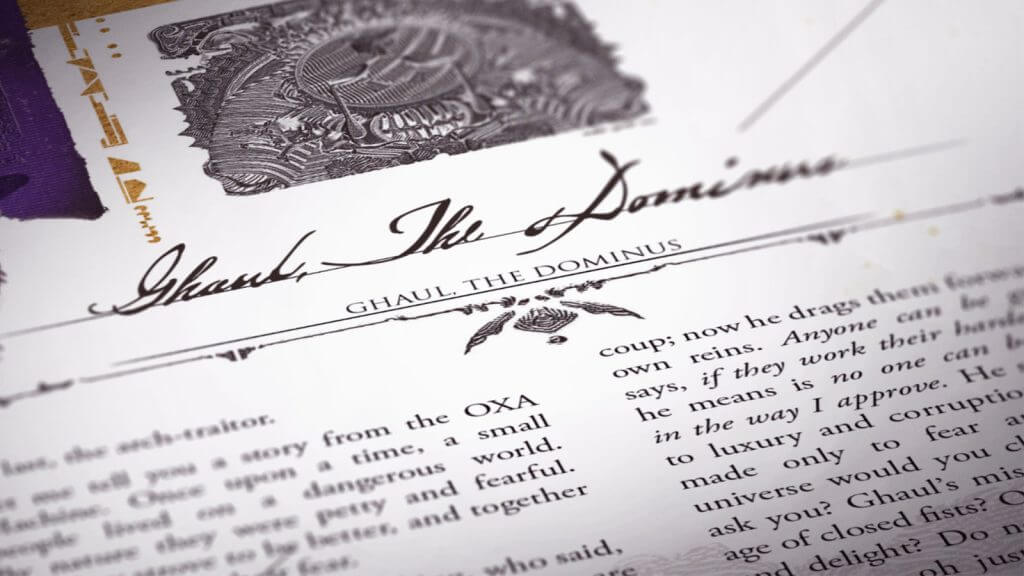 Ghaul, The Dominus
GHAUL, THE DOMINUS
last, the arch-traitor.
me tell you a story from the OXA
Machine. Once upon a time, a small
people lived on a dangerous world.
By nature they were petty and fearful.
nature to be better, and together
fear.
who said,
coup; now he drags them forward
own reins. Anyone can be
says, if they work their
he means is no one can
in the way I approve. He
to luxury and corruption
made only to fear
universe would you
ask you? Ghaul's
age of closed fists?
and delight? Do
oh just